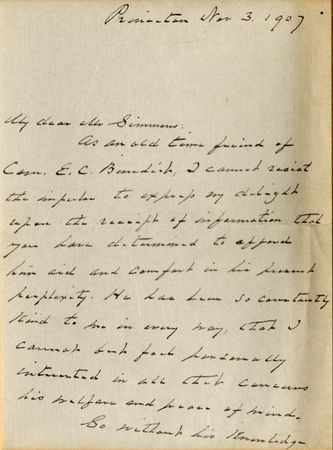 Princeton Nov 3. 1907
My dear Mr Simmons:
As an old time friend of
Com. E. C. Benedict, I cannot resist
the impulse to express my delight
upon the receipt of information that
you have determined to afford
him aid and comfort in his present
perplexity. He has been so constantly
kind to me in every way, that I
cannot but feel personally
interested in all that concerns
his welfare and peace of mind.
So without his knowledge